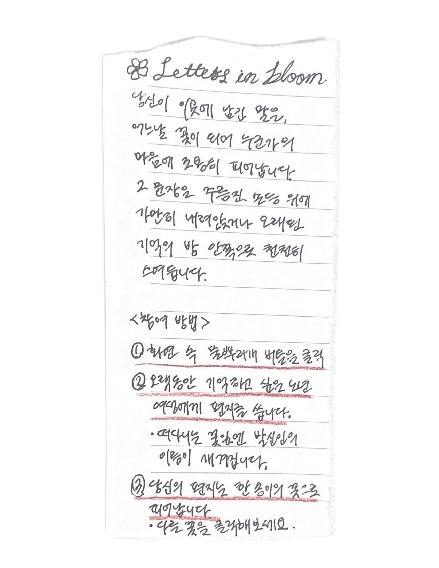 Letters in bloom
당신이 이곳에 남긴 말은,
어느날 꽃이 되어 누군가의
마음에 조용히 피어납니다
그 문장은 주름진 모퉁 위에
가만히 내려앉거나 오래된
기억의 방 안쪽으로 천천히
스며듭니다.
<참여 방법>
① 화면 속 물뿌리개 버튼을 클릭
② 오랫동안 기억하고 싶은 노년
여성에게 편지를 씁니다.
· 떠다니는 꽃잎엔 발신인의
이름이 새겨집니다.
③ 당신의 편지는 한 송이의 꽃으로
피어납니다
· 다른 꽃을 클릭해보세요.